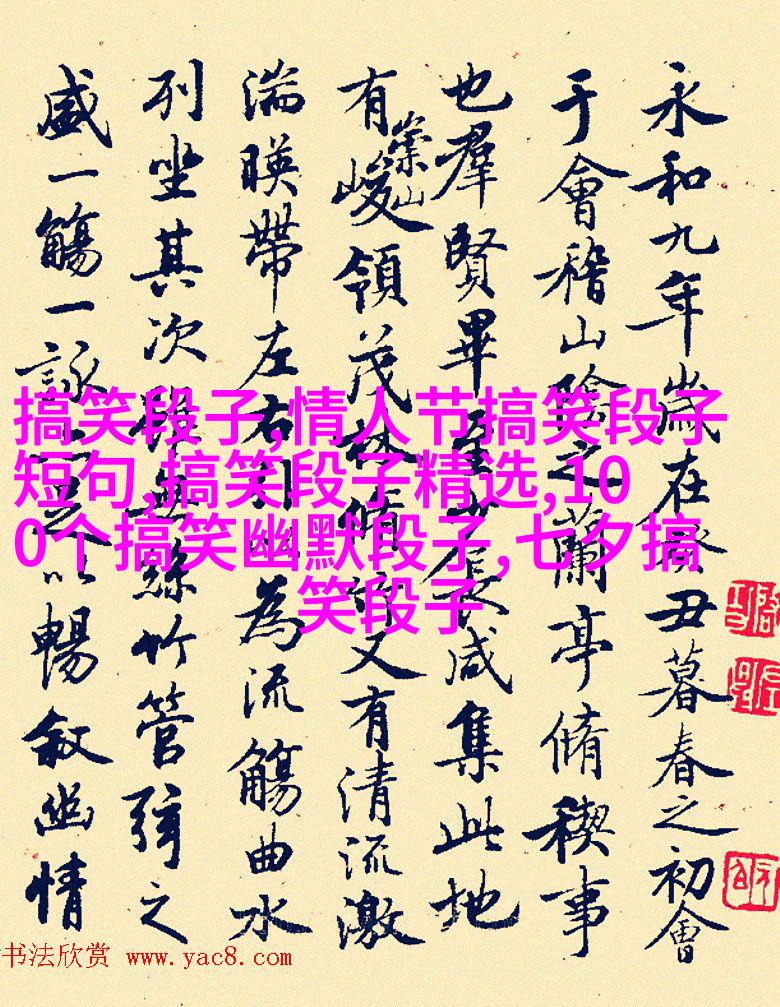 永和九年歲在癸丑暮春之初會
于會稽山陰之蘭亭脩稧事
也羣賢畢至少長咸集此地
有崇山峻領茂林脩竹又有清流激
湍暎帶左右引以為流觴曲水
列坐其次雖無絲竹管弦之
盛一觴一詠亦足以暢敘幽情
搞笑段子,情人节搞笑段子
短句,搞笑段子精选,10
0个搞笑幽默段子,七夕搞
笑段子
书法欣赏 www.yac8.com